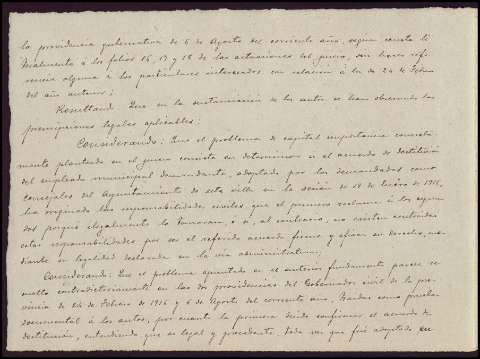 la providencia gubernativa de 6 de Agosto del corriente año, segun consta li-
teralmente á los folios 16, 17 y 18 de las actuaciones del juicio, sin hacer refe-
rencia alguna á los particulares interesados en relacion á la de 24 de Febrero
del año anterior;
Resultando: Que en la sustanciacion de los autos se han observado las
prescripciones legales aplicables;
Considerando: Que el problema de capital importancia concreta-
mente planteado en el juicio consiste en determinar si el acuerdo de destitución
del empleado municipal demandante, adoptado por los demandados como
concejales del Ayuntamiento de esta villa en la sesión de 18 de Enero de 1916,
ha originado las responsabilidades civiles, que el primero reclama á los segun-
dos porque ilegalmente lo tomaron, ó si, al contrario, no existen contraidas
estas responsabilidades por ser el referido acuerdo firme y eficaz en derecho, me-
diante su legalidad declarada en la vía administrativa;
Considerando: Que el problema apuntado en el anterior fundamento parece re-
suelto contradictoriamente en las dos providencias del Gobernador civil de la pro-
vincia de 24 de Febrero de 1916 y 6 de Agosto del corriente año, traidas como prueba
documental á los autos, por cuanto la primera decide confirmar el acuerdo de
destitución, entendiendo que es legal y procedente, toda vez que fué adoptado en